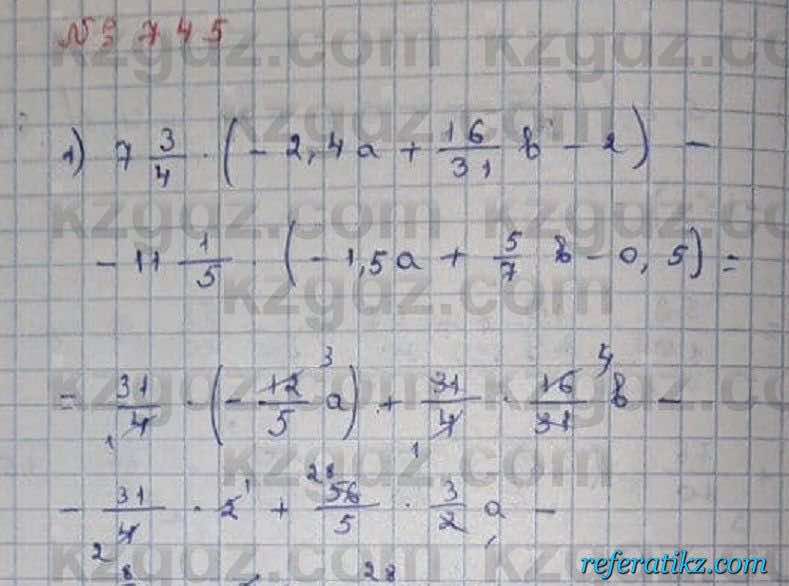 № 5 745
1) 7 3/4 · (- 2,4a + 16/31 b - 2) -
- 11 1/5 · (- 1,5a + 5/7 b - 0,5) =
= 31/4 · (- 12/5 a) + 31/4 · 16/31 b -
- 31/4 · 2 + 56/5 · 3/2 a -
kzgdz.com
referatikz.com